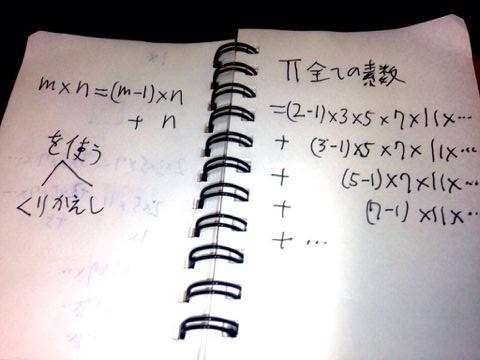 m×n=(m-1)×n
+ n
を使う
くりかえし
Π全ての素数
=(2-1)×3×5×7×11×…
+ (3-1)×5×7×11×…
+ (5-1)×7×11×…
+ (7-1)×11×…
+ …